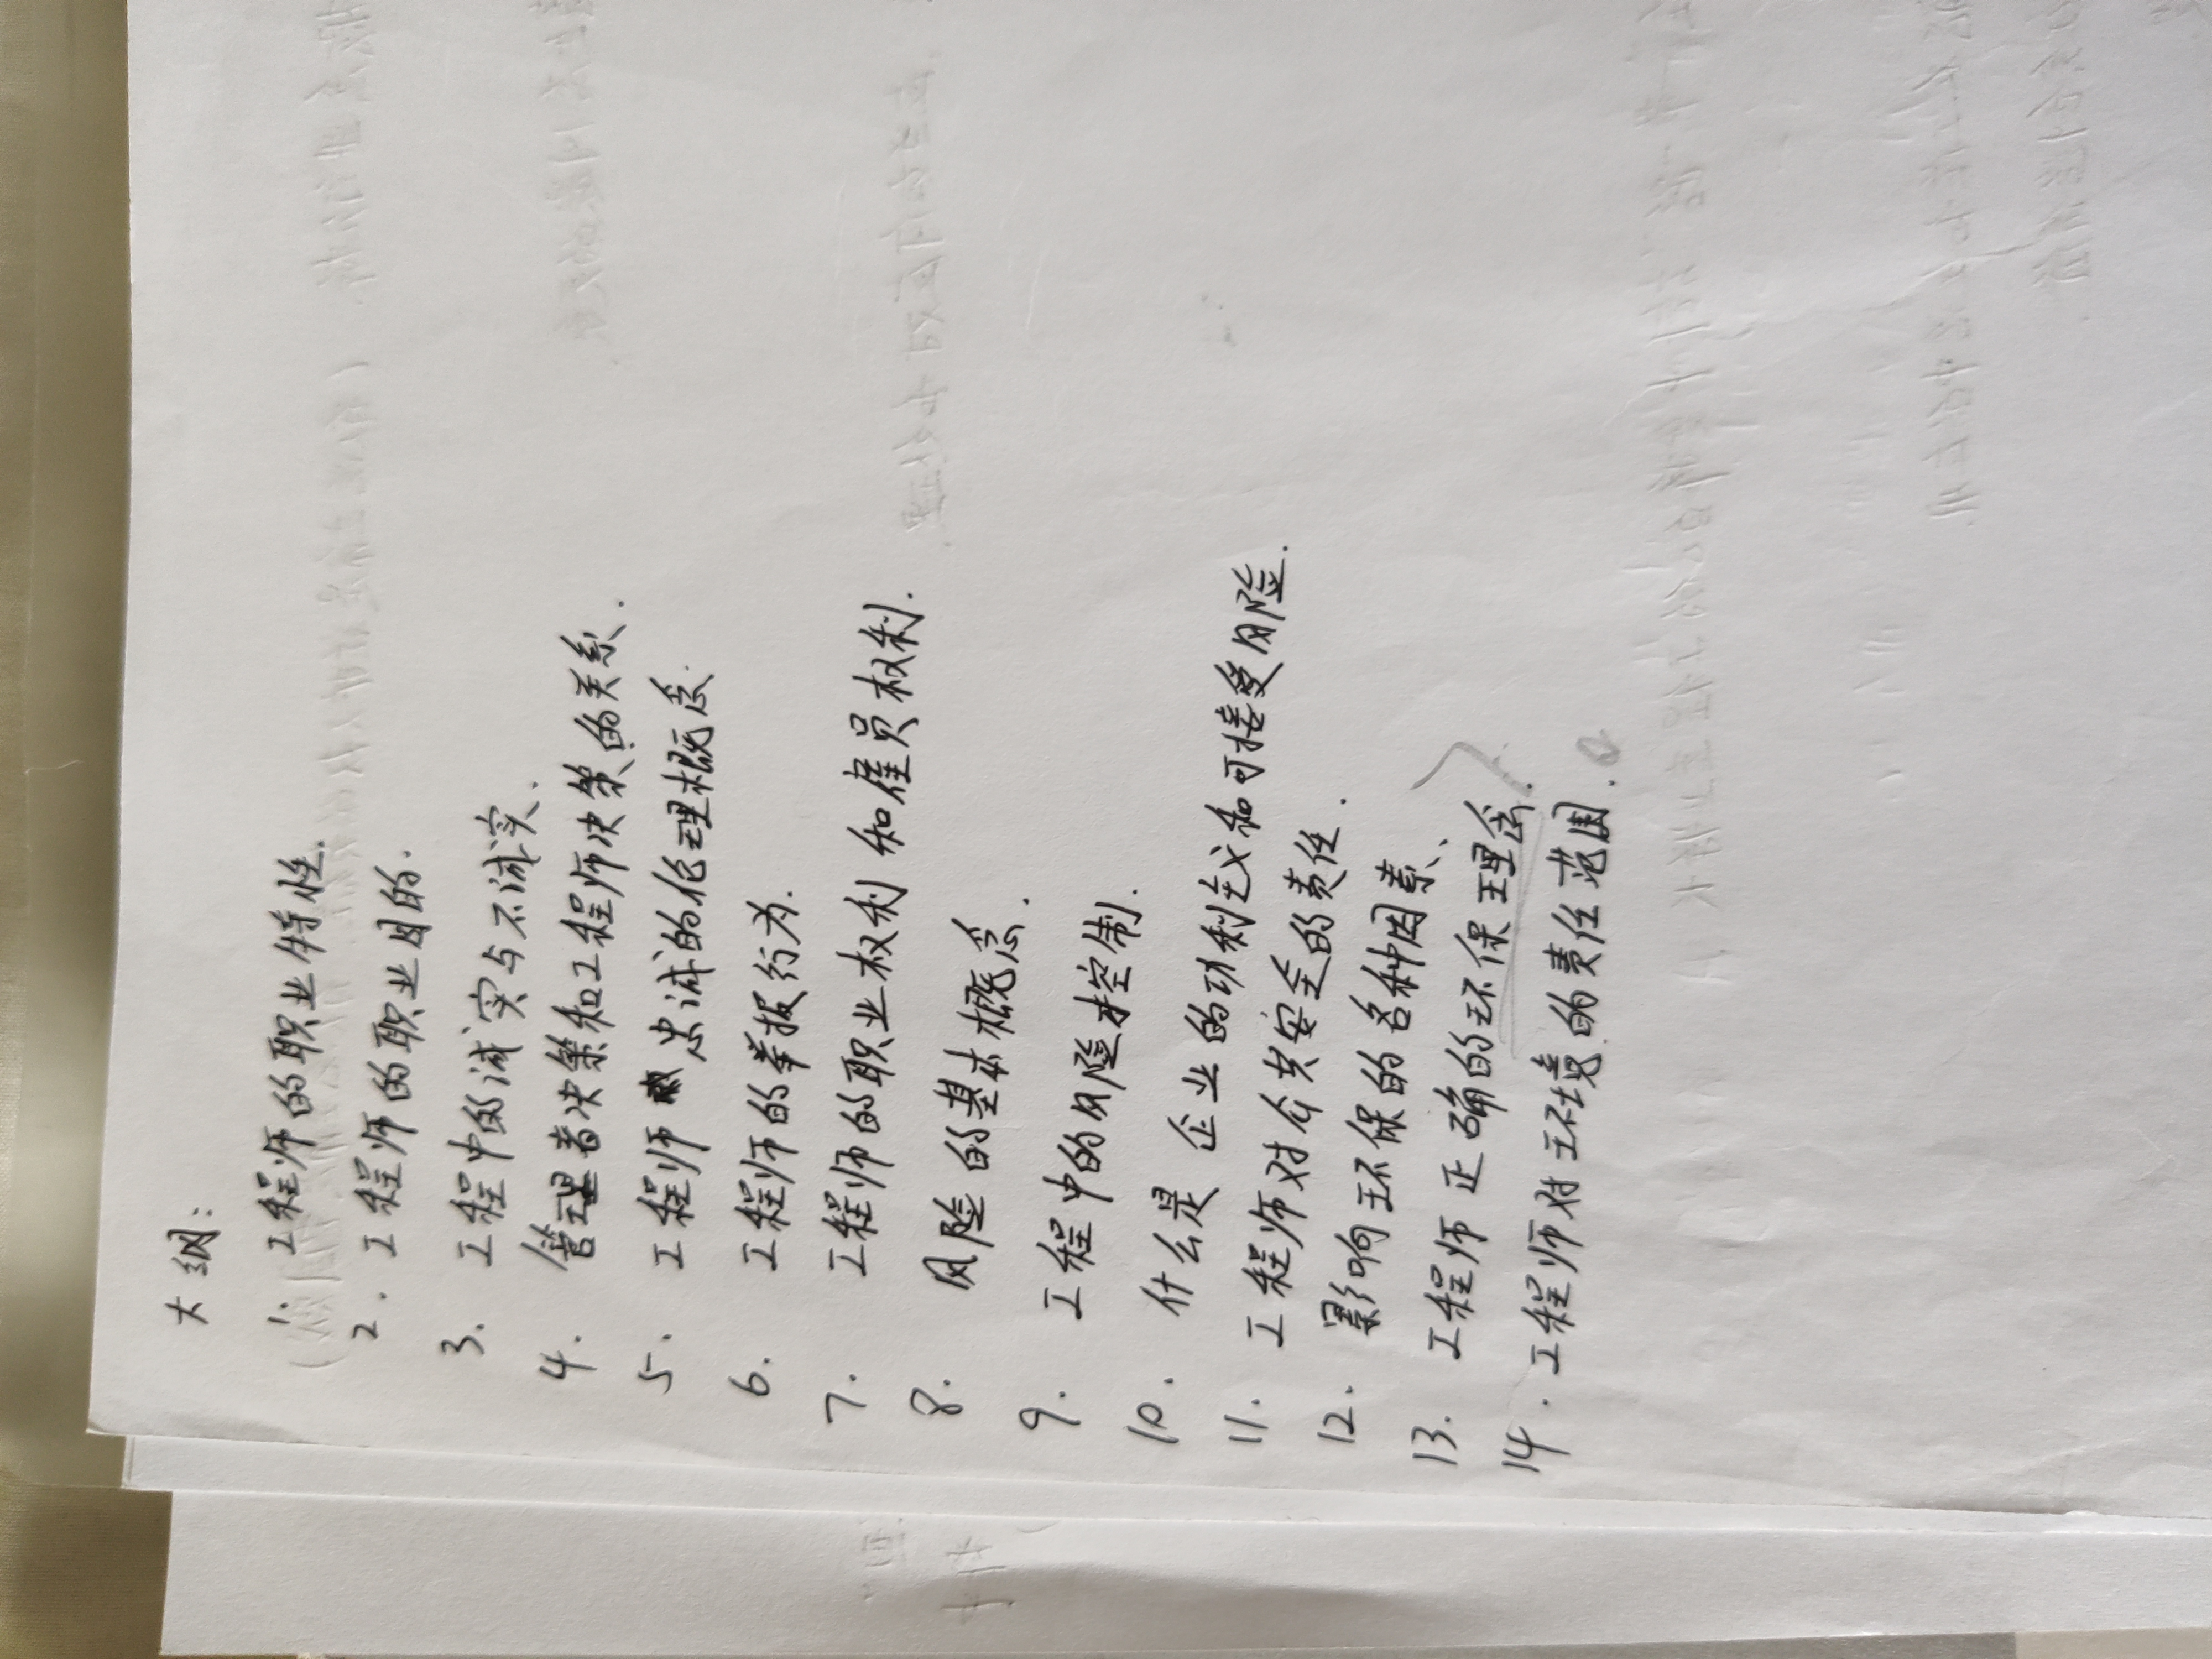 大纲:
1. 工程师的职业特性.
2. 工程师的职业目的.
3. 工程中的诚实与不诚实.
4. 管理者决策和工程师决策的关系.
5. 工程师忠诚的伦理概念.
6. 工程师的举报行为.
7. 工程师的职业权利和雇员权利.
8. 风险的基本概念.
9. 工程中的风险控制.
10. 什么是企业的功利主义和可接受风险.
11. 工程师对公共安全的责任.
12. 影响环保的各种因素、
13. 工程师正确的环保理念.
14. 工程师对环境的责任范围.